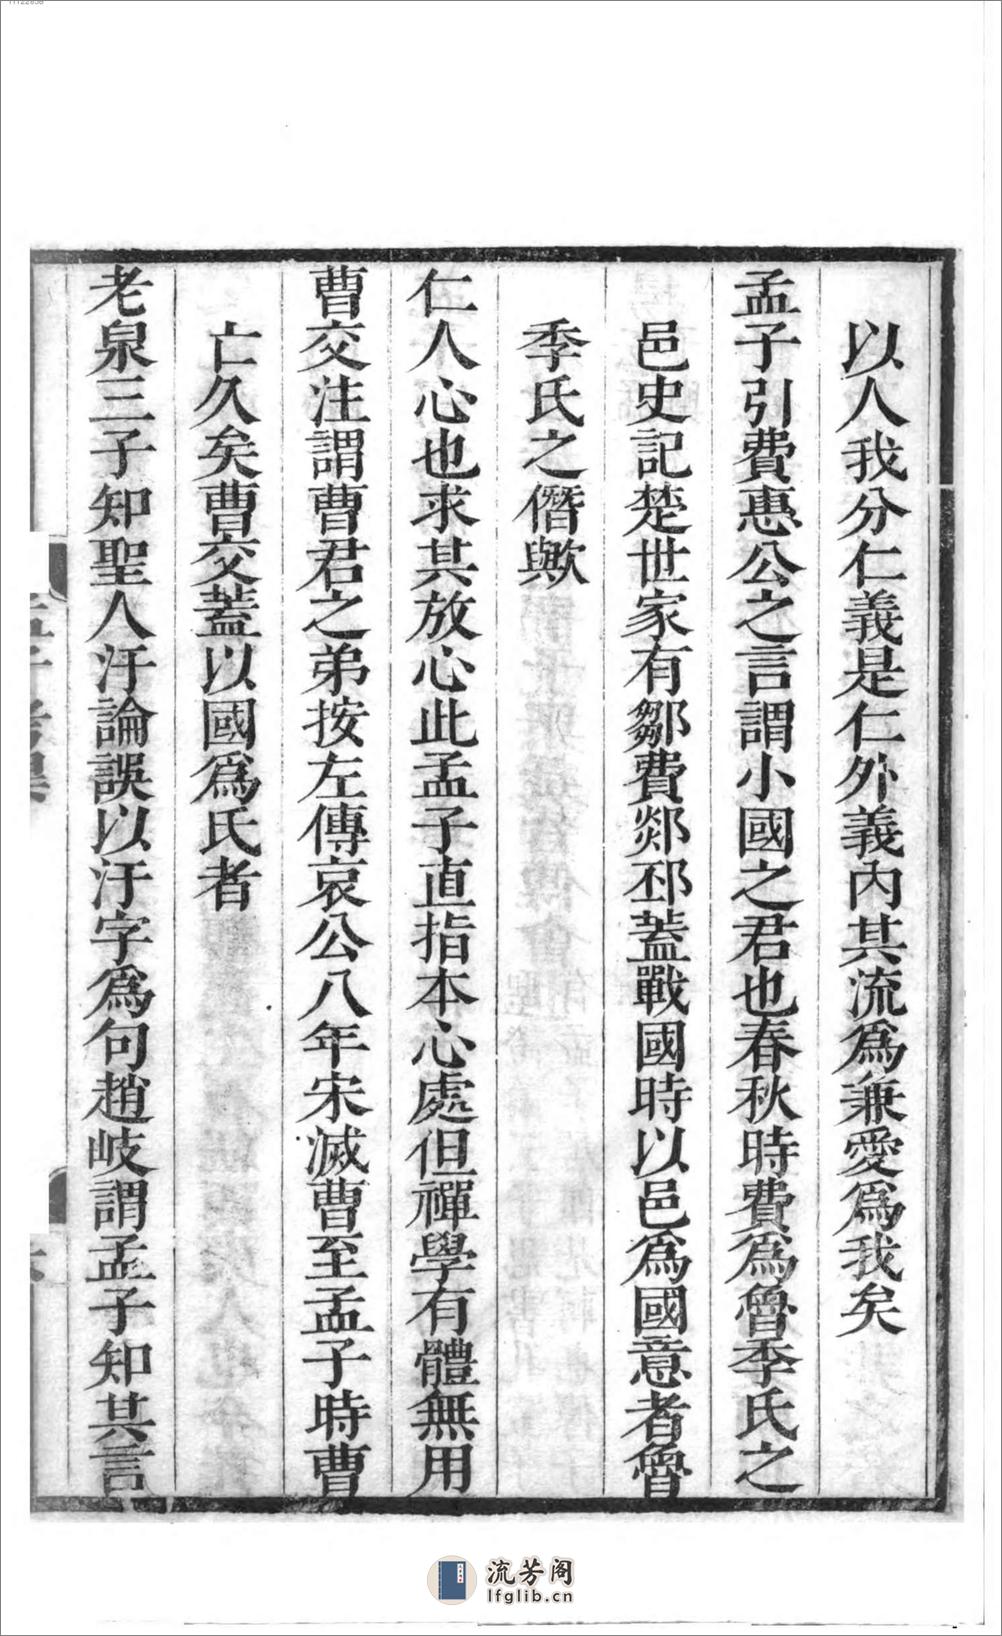 以人我分仁義是仁外義內其流爲兼愛爲我矣
孟子引費惠公之言謂小國之君也春秋時費爲魯季氏之
邑史記楚世家有鄒費郯邳蓋戰國時以邑爲國意者魯
季氏之僭歟
仁人心也求其放心此孟子直指本心處但禪學有體無用
曹交注謂曹君之弟按左傳哀公八年宋滅曹至孟子時曹
亡久矣曹交蓋以國爲氏者
老泉三子知聖人汙論誤以汙字爲句趙岐謂孟子知其言
流芳阁
lfglib.cn